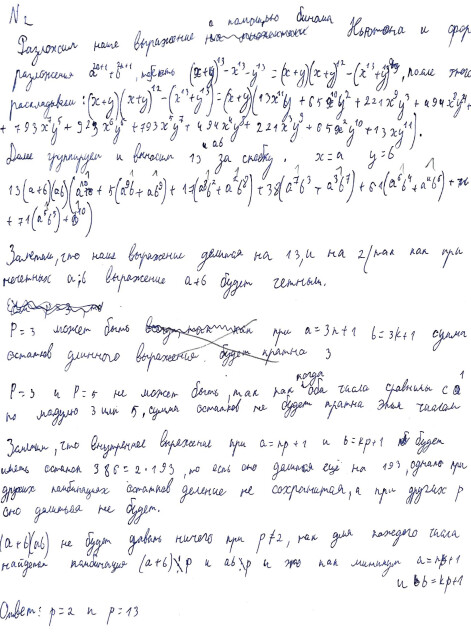 N 2
с помощью бинома
Разложим наше выражение Ньютона и фор
разложения a²ⁿ⁺¹+b²ⁿ⁺¹, (x+y)¹³-x¹³-y¹³ = (x+y)(x+y)¹²-(x¹³+y¹³), после этого
раскладываем: (x+y)(x+y)¹²-(x¹³+y¹³)=(x+y)(13x¹¹y + 65x¹⁰y²+221x⁹y³+494x⁸y⁴+
+ 793x⁷y⁵+923x⁶y⁶+793x⁵y⁷+494x⁴y⁸+221x³y⁹+65x²y¹⁰+13xy¹¹).
Далее группируем и выносим 13 и ab за скобку. x=a y=b
13(a+b)(ab)(a¹⁰+ 5(a⁹b+ab⁹)+17(a⁸b²+a²b⁸)+38(a⁷b³+a³b⁷)+61(a⁶b⁴+a⁴b⁶)+
+71(a⁵b⁵)+b¹⁰)
Заметим, что наше выражение делится на 13, и на 2 /так как при
нечетных a; b выражение a+b будет четным.
P=3 может быть при a=3n+1 b=3k+1 сумма
остатков длинного выражения будет кратна 3
P=3 и P=5 не может быть, так как когда оба числа сравнимы с 1
по модулю 3 или 5, сумма остатков не будет кратна этим числам
Заметим, что внутренное выражение при a=np+1 и b=kp+1 будет
иметь остаток 386=2·193, то есть оно делится ещё на 193, однако при
других комбинациях остатков деление не сохранится, а при других p
оно делиться не будет.
(a+b)(ab) не будут давать ничего при p≠2, как для каждого числа
найдется комбинация (a+b)⋮̸p и ab⋮̸p и это как минимум a=np+1
и b=kp+1
Ответ: p=2 и p=13